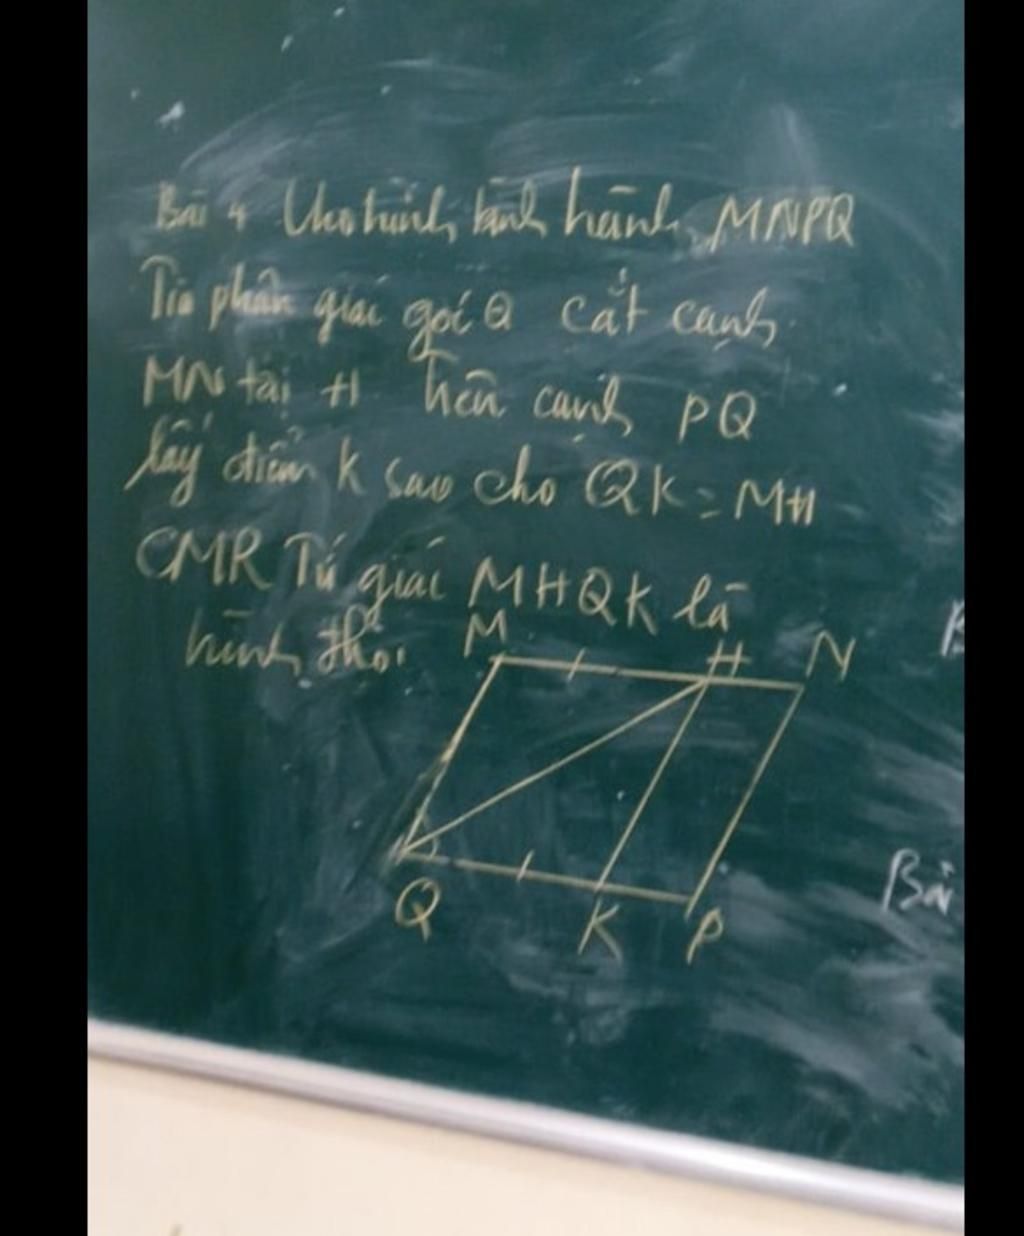 Bài 4 Cho hình bình hành MNPQ
Tia phân giác góc Q cắt cạnh
MN tại H trên cạnh PQ
lấy điểm K sao cho QK = MH
CMR Tứ giác MHQK là
hình thoi
M H N
Q K P
Bài